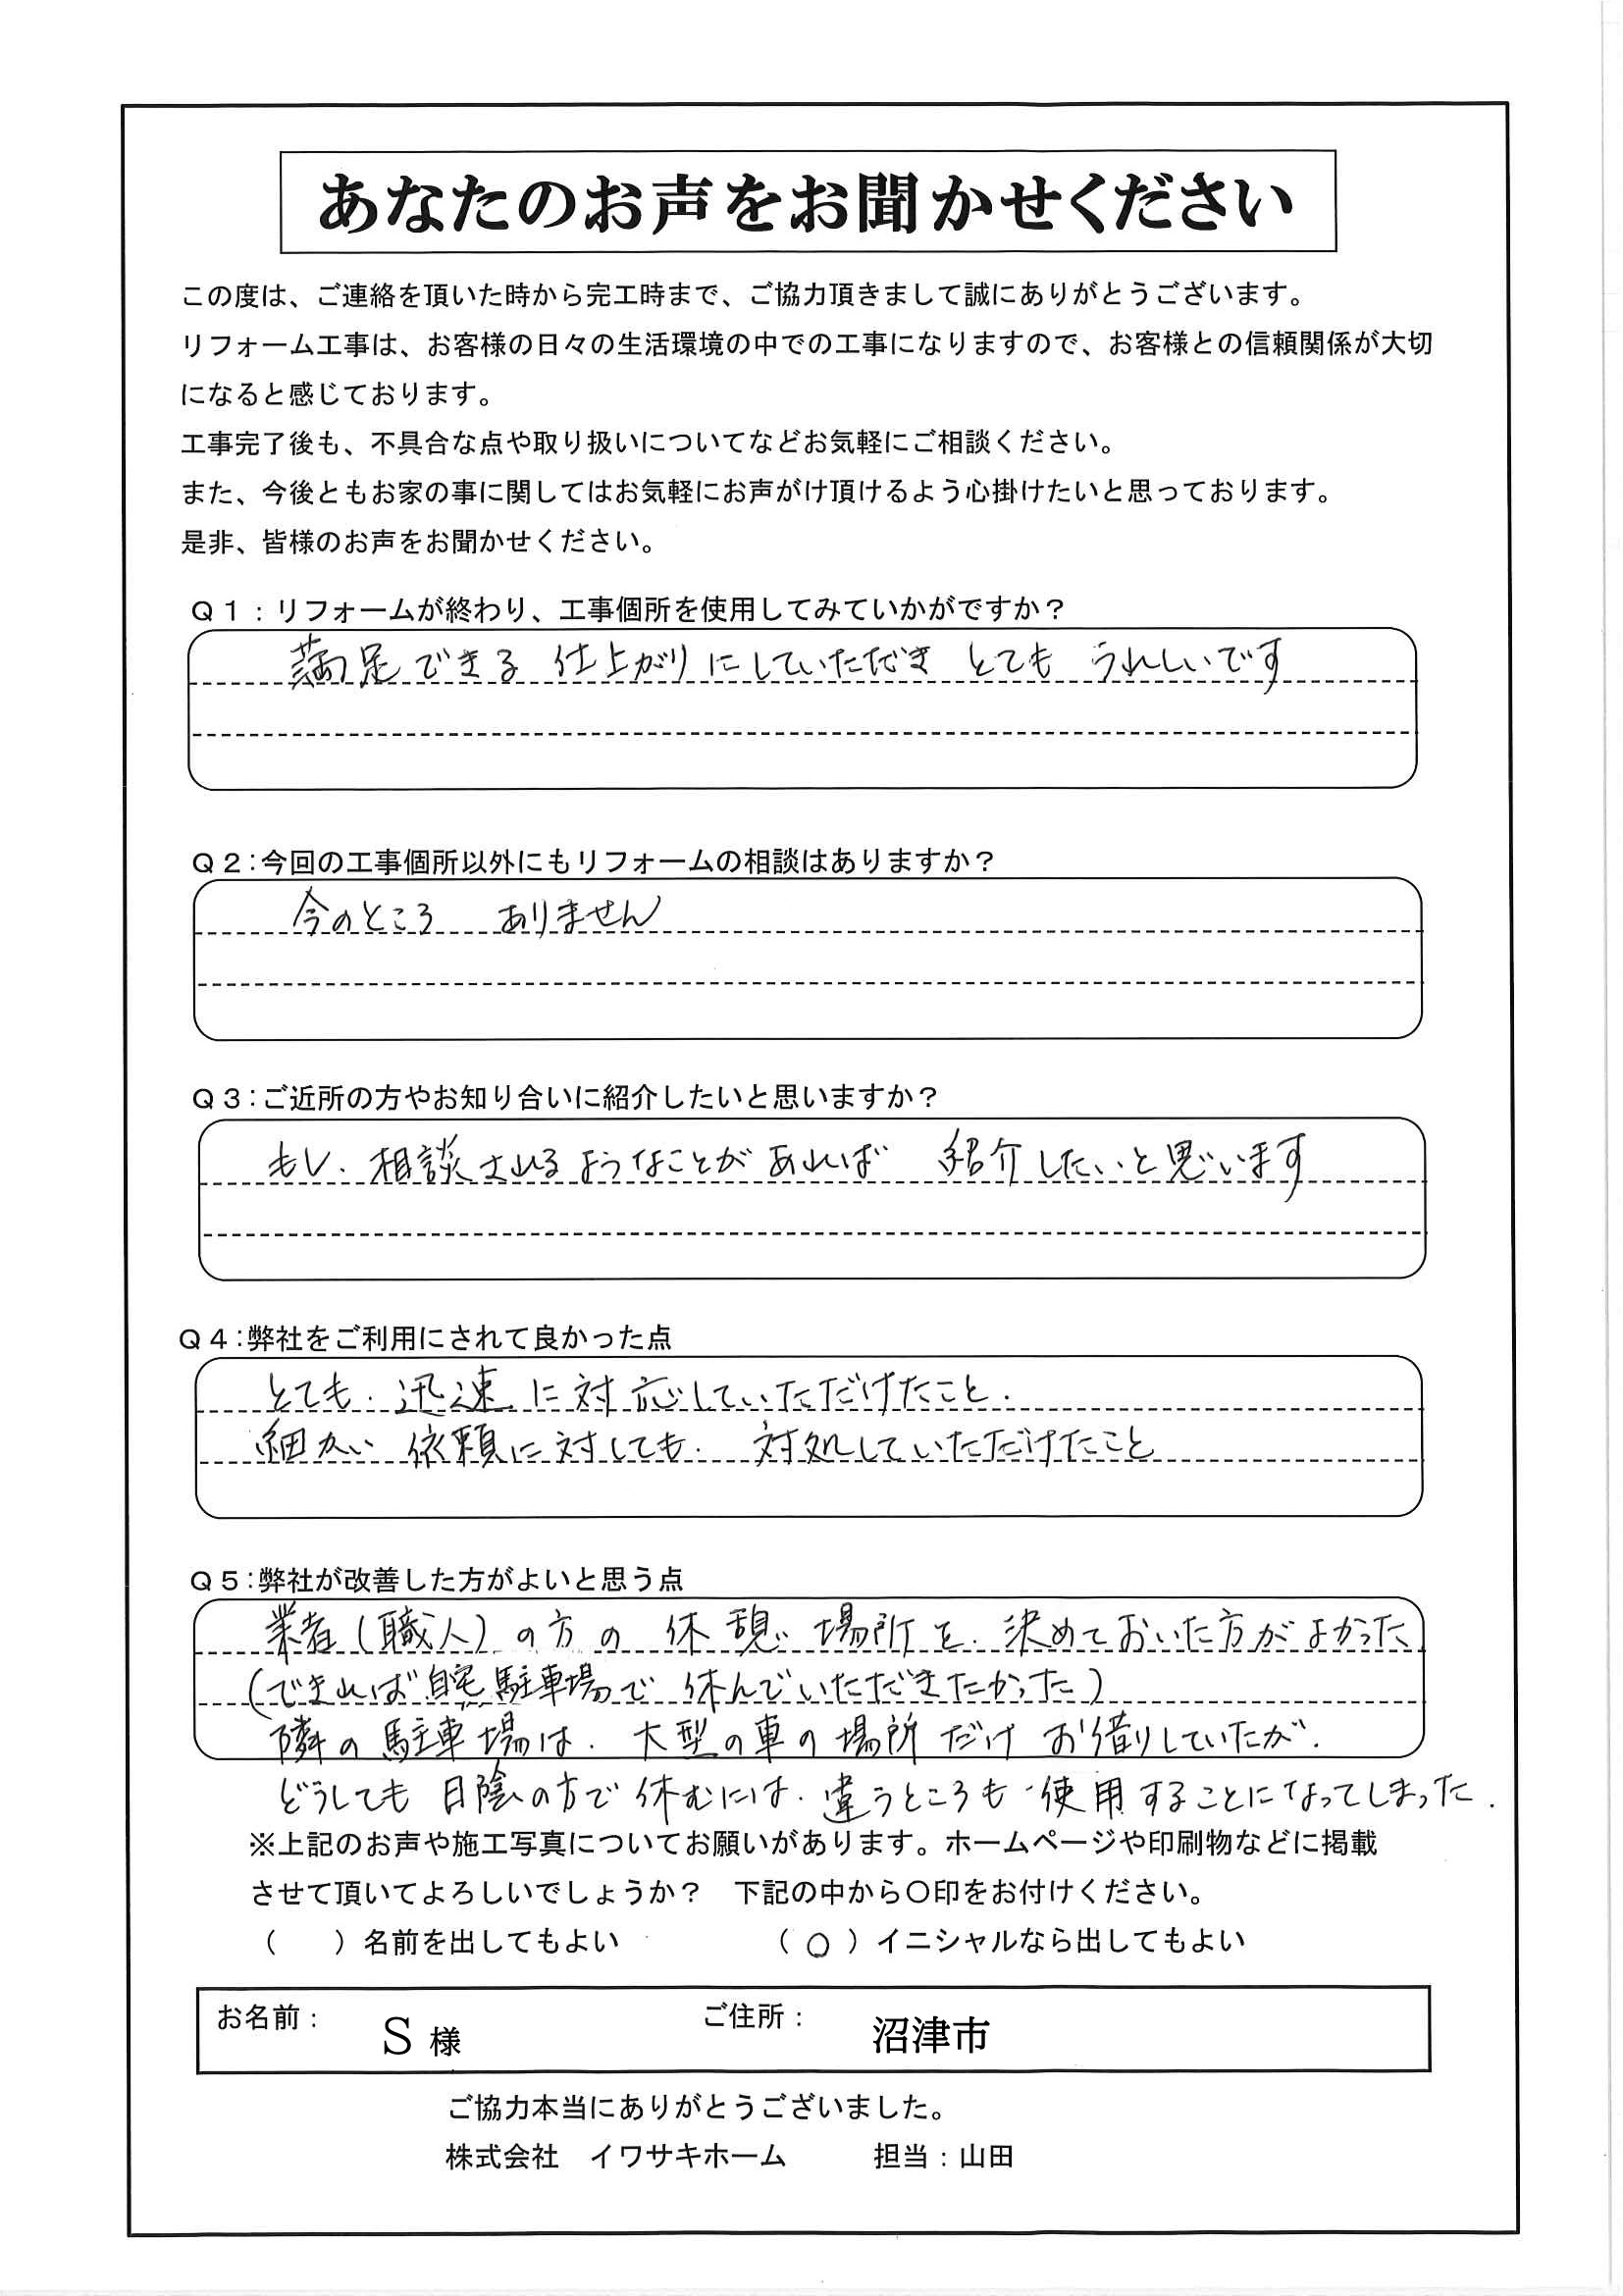 あなたのお声をお聞かせください
この度は、ご連絡を頂いた時から完工時まで、ご協力頂きまして誠にありがとうございます。
リフォーム工事は、お客様の日々の生活環境の中での工事になりますので、お客様との信頼関係が大切
になると感じております。
工事完了後も、不具合な点や取り扱いについてなどお気軽にご相談ください。
また、今後ともお家の事に関してはお気軽にお声がけ頂けるよう心掛けたいと思っております。
是非、皆様のお声をお聞かせください。
Q1：リフォームが終わり、工事個所を使用してみていかがですか？
満足できる 仕上がりにしていただき とても うれしいです
Q2：今回の工事個所以外にもリフォームの相談はありますか？
今のところ ありません
Q3：ご近所の方やお知り合いに紹介したいと思いますか？
もし、相談されるようなことがあれば 紹介したいと思います
Q4：弊社をご利用にされて良かった点
とても、迅速に対応していただけたこと．
細かい 依頼に対しても、対処していただけたこと
Q5：弊社が改善した方がよいと思う点
業者(職人)の方の 休憩場所を、決めておいた方がよかった
(できれば自宅駐車場で 休んでいただきたかった)
隣の駐車場は、大型の車の場所だけ お借りしていたが、
どうしても 日陰の方で休むには、違うところも 使用することになってしまった．
※上記のお声や施工写真についてお願いがあります。ホームページや印刷物などに掲載
させて頂いてよろしいでしょうか？ 下記の中から〇印をお付けください。
（　　）名前を出してもよい （ ○ ）イニシャルなら出してもよい
お名前： S 様 ご住所： 沼津市
ご協力本当にありがとうございました。
株式会社 イワサキホーム 担当：山田